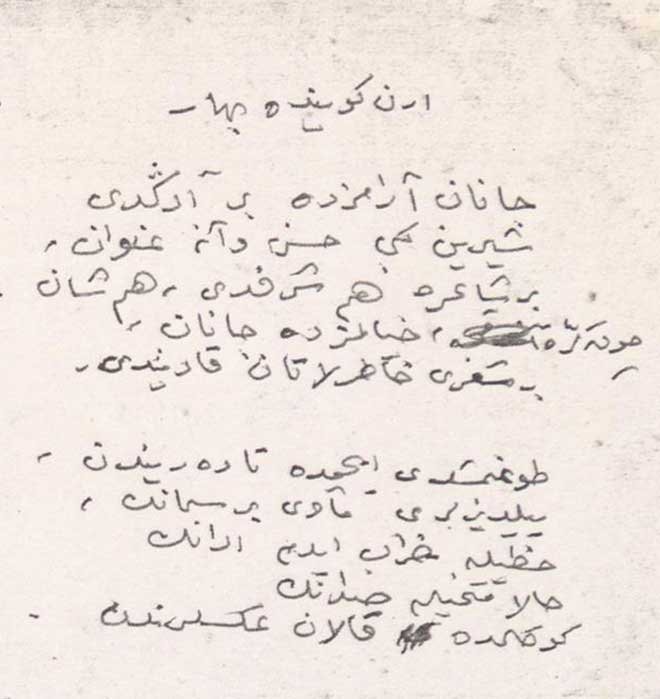 ارن كوینده بهار
جانان آرامزده بر آد گدی
شیرین گبی حسن و آنه عنوان،
بر شاعره هم شرفدی، هم شان
چوق كره، خیالمزده جانان،
بر شعری خاطرلاتان قادیندی.
طوغمشدی ایچمده تا درینن
ییلدیزلری ماوی بر سمانك،
حظیله خراب ایدم ادانك
حالا متخیله صدانك
كوكلمده قالان عكسلرندن.